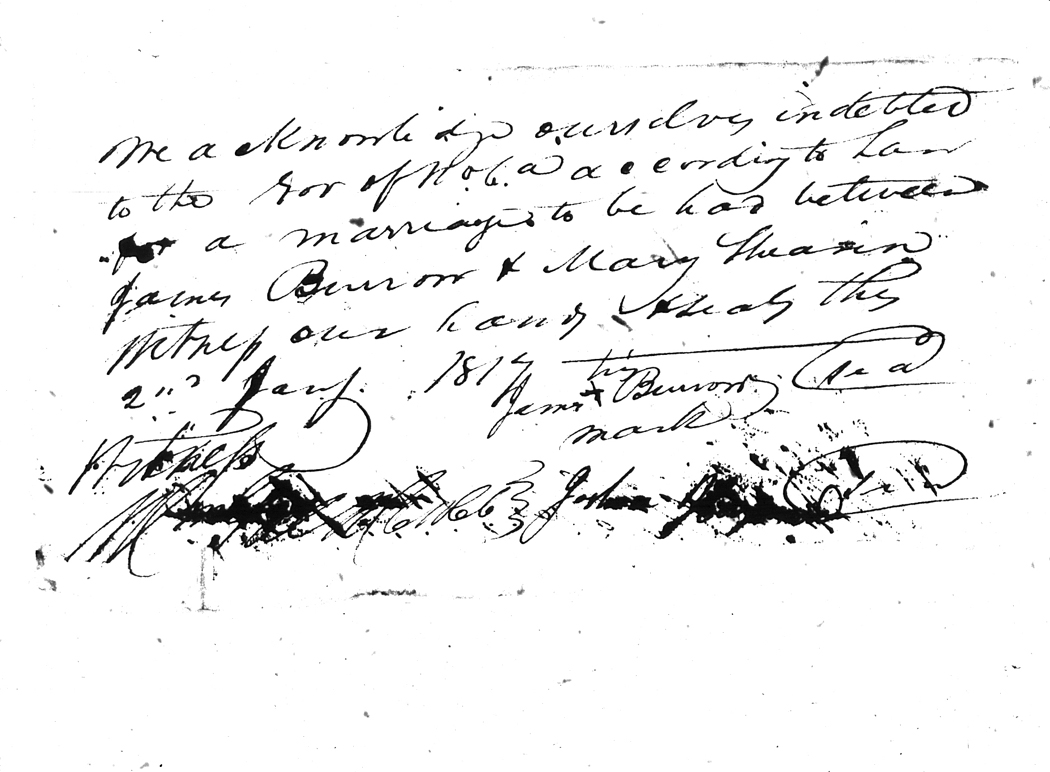 We acknowlidge ourselves indebted
to the Gov of No. Ca. according to Law
for a marriage to be had between
James Burrow & Mary Shearin
Witness our hands & seals this
2nd Jany. 1817
his
James Burrow Seal
mark
Witness
Joshua Seal